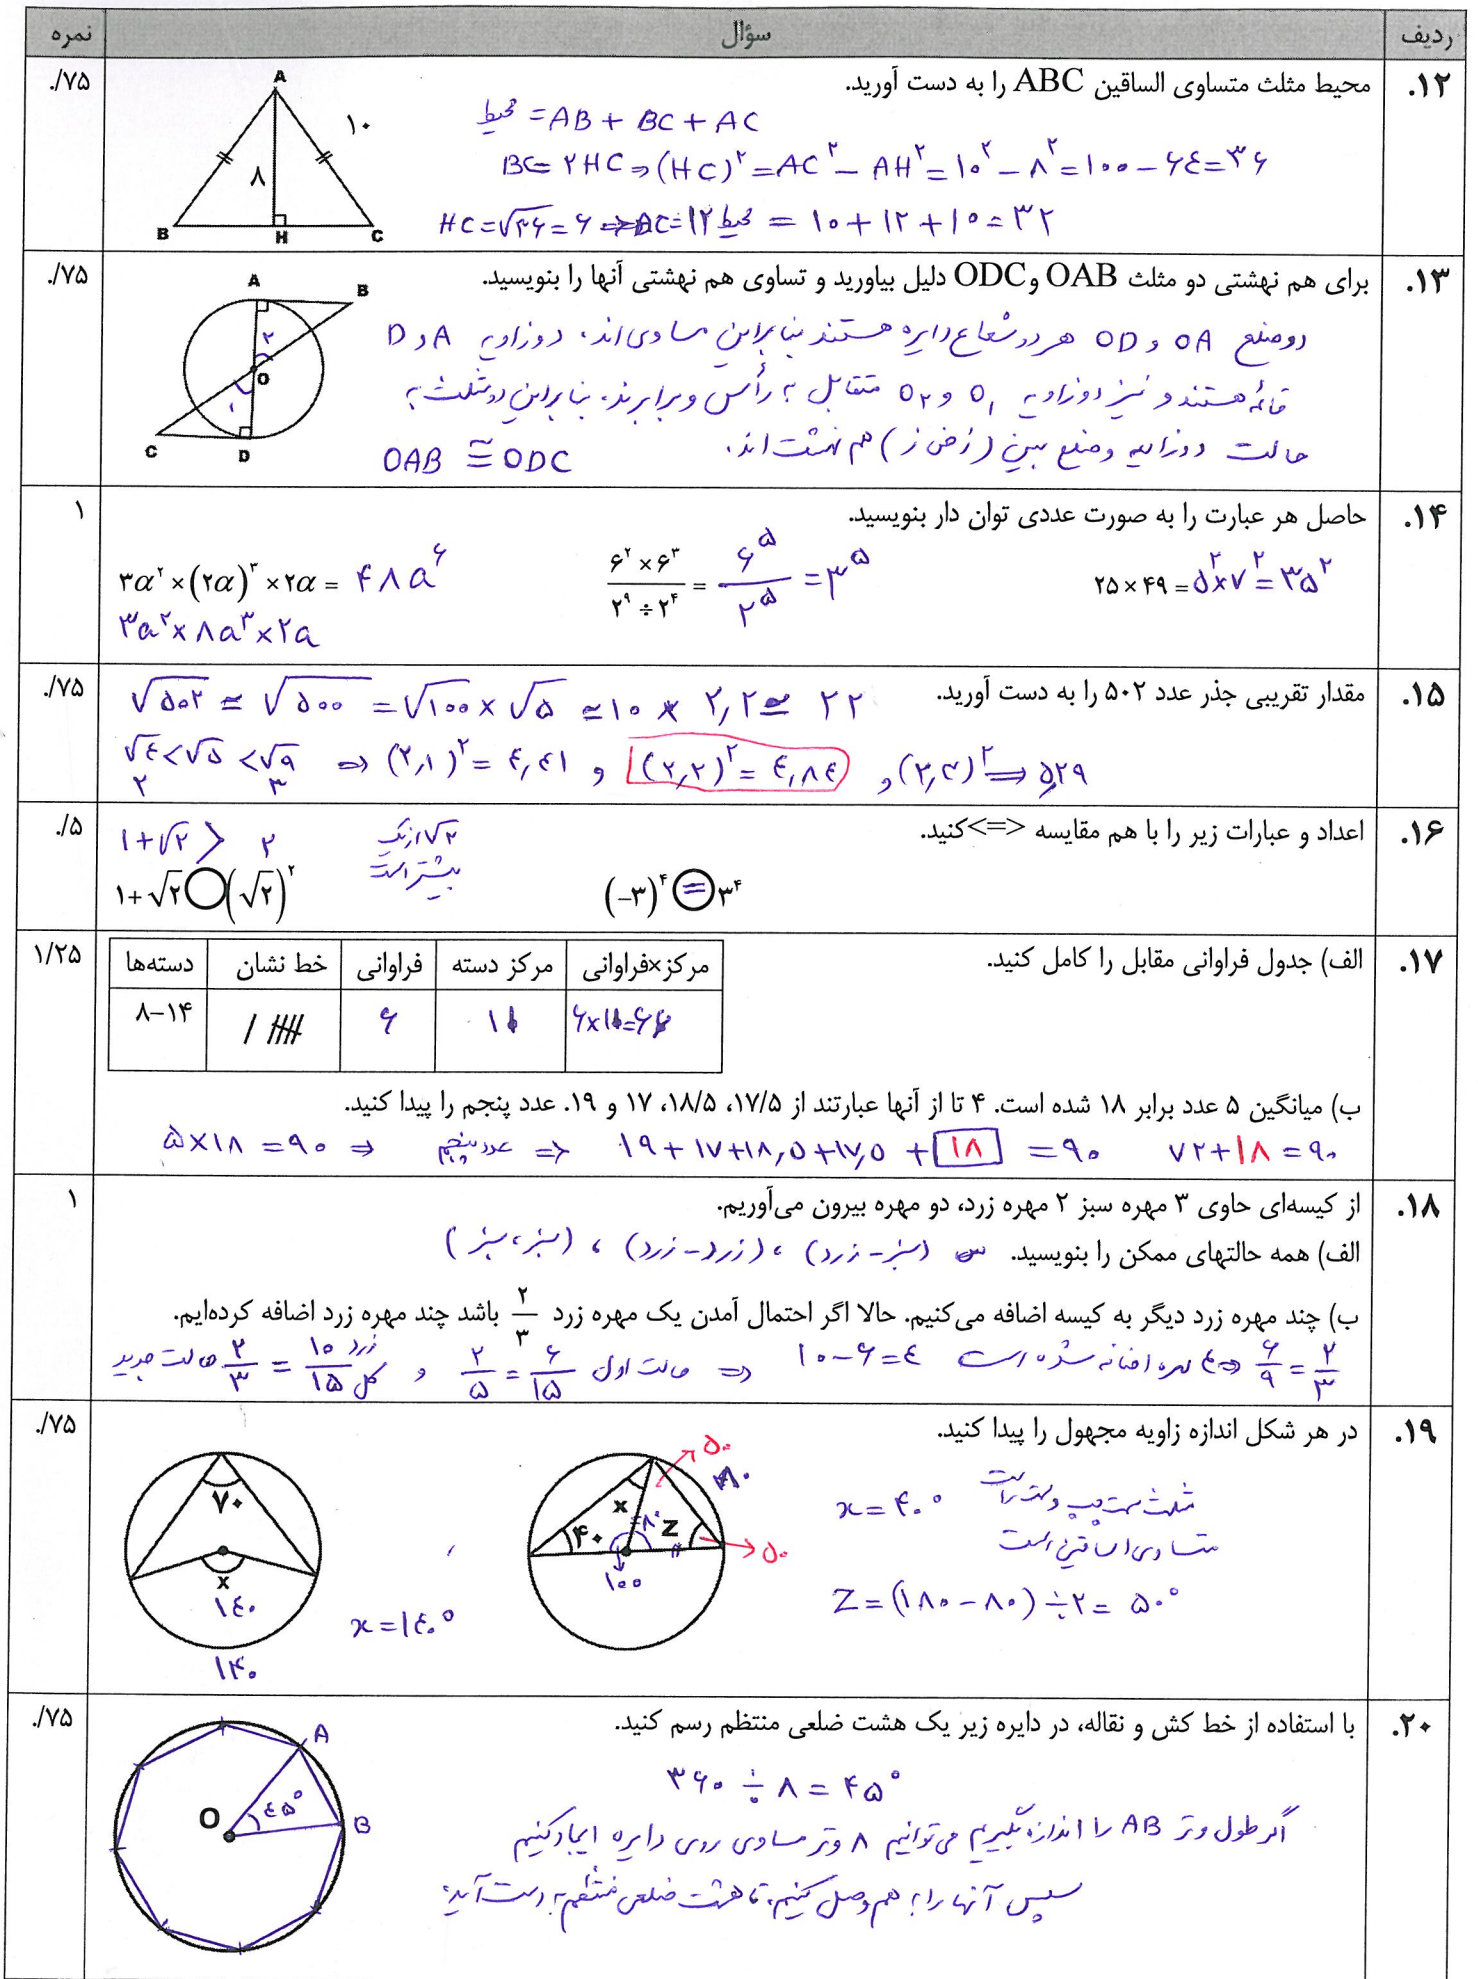 ردیف سؤال نمره
۱۲. محیط مثلث متساوی الساقین ABC را به دست آورید. ۰/۷۵
A
B
H
C
۱۰
۸
محیط = AB + BC + AC
BC = ۲HC ⇒ (HC)^۲ = AC^۲ − AH^۲ = ۱۰^۲ − ۸^۲ = ۱۰۰ − ۶۴ = ۳۶
HC = √۳۶ = ۶ ⇒ BC = ۱۲ محیط = ۱۰ + ۱۲ + ۱۰ = ۳۲
۱۳. برای هم نهشتی دو مثلث OAB وODC دلیل بیاورید و تساوی هم نهشتی آنها را بنویسید. ۰/۷۵
A
B
O
C
D
۱
۲
دوضلع OA و OD هر دو شعاع دایره هستند بنابراین مساوی‌اند، دوزاویه A و D
قائمه هستند و نیز دوزاویه O₁ و O₂ متقابل به رأس و برابرند، بنابراین دو مثلث به
حالت دوزاویه وضلع بین (ز ض ز) هم نهشت اند.
OAB ≅ ODC
۱۴. حاصل هر عبارت را به صورت عددی توان دار بنویسید. ۱
۲۵ × ۴۹ = ۵^۲ × ۷^۲ = ۳۵^۲
(۶^۲ × ۶^۳) / (۲^۹ ÷ ۲^۴) = ۶^۵ / ۲^۵ = ۳^۵
۳a^۲ × (۲a)^۳ × ۲a = ۴۸a^۶
۳a^۲ × ۸a^۳ × ۲a
۱۵. مقدار تقریبی جذر عدد ۵۰۲ را به دست آورید. ۰/۷۵
√۵۰۲ ≃ √۵۰۰ = √۱۰۰ × √۵ ≃ ۱۰ × ۲,۲ ≃ ۲۲
√۴ < √۵ < √۹ ⇒ (۲,۱)^۲ = ۴,۴۱ و (۲,۲)^۲ = ۴,۸۴ و (۲,۳)^۲ ⇒ ۵,۲۹
۲ ۳
۱۶. اعداد و عبارات زیر را با هم مقایسه <=>کنید. ۰/۵
۱+√۲ > ۲
√۲ از یک
بیشتر است
(−۳)^۴ = ۳^۴
۱+√۲ ○ (√۲)^۲
۱۷. الف) جدول فراوانی مقابل را کامل کنید. ۱/۲۵
دسته‌ها خط نشان فراوانی مرکز دسته مرکز×فراوانی
۸−۱۴ / //// ۶ ۱۱ ۶×۱۱=۶۶
ب) میانگین ۵ عدد برابر ۱۸ شده است. ۴ تا از آنها عبارتند از ۱۷/۵، ۱۸/۵، ۱۷ و ۱۹. عدد پنجم را پیدا کنید.
۵×۱۸ = ۹۰ ⇒ عدد پنجم ⇒ ۱۹ + ۱۷ + ۱۸,۵ + ۱۷,۵ + ۱۸ = ۹۰ ۷۲ + ۱۸ = ۹۰
۱۸. از کیسه‌ای حاوی ۳ مهره سبز ۲ مهره زرد، دو مهره بیرون می‌آوریم. ۱
الف) همه حالتهای ممکن را بنویسید. (سبز - زرد) ، (زرد - زرد) ، (سبز ، سبز)
ب) چند مهره زرد دیگر به کیسه اضافه می‌کنیم. حالا اگر احتمال آمدن یک مهره زرد ۲/۳ باشد چند مهره زرد اضافه کرده‌ایم.
۲/۳ = ۶/۹ ⇒ ۴ مهره اضافه شده است ۱۰−۶=۴ ⇒ حالت اول ۶/۱۵ = ۲/۵ و زرد ۱۰ / کل ۱۵ = ۲/۳ حالت جدید
۱۹. در هر شکل اندازه زاویه مجهول را پیدا کنید. ۰/۷۵
۵۰
۸۰
x
۴۰
۸۰
Z
۱۰۰
۵۰
x = ۴۰° مثلث سمت چپ و سمت راست
متساوی الساقین است
Z = (۱۸۰ − ۸۰) ÷ ۲ = ۵۰°
۷۰
x
۱۴۰
۱۴۰
x = ۱۴۰°
۲۰. با استفاده از خط کش و نقاله، در دایره زیر یک هشت ضلعی منتظم رسم کنید. ۰/۷۵
A
O
۴۵°
B
۳۶۰ ÷ ۸ = ۴۵°
اگر طول وتر AB را اندازه بگیریم می توانیم ۸ وتر مساوی روی دایره ایجاد کنیم
سپس آنها را به هم وصل کنیم، تا هشت ضلعی منتظم به دست آید.